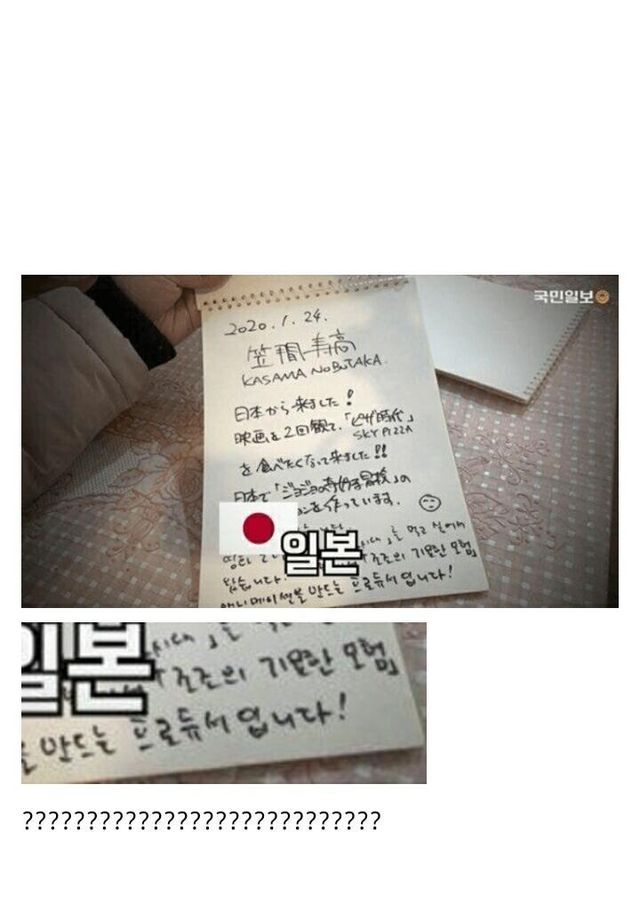 국민일보
2020.1.24.
笠間寿高
KASAMA NOBUTAKA
日本から来ました!
映画を2回観て、「ピザ時代」
SKY PIZZA
を食べたくなって来ました!!
日本で「ジョジョの奇妙な冒険」の
ションを作っています。
」를 먹고 싶어서
일본
조조의 기묘한 모험」
왔습니다!
애니메이션을 만드는 프로듀서입니다!
일본
시대」를
조조의 기묘한 모험」
을 만드는 프로듀서입니다!
????????????????????????????